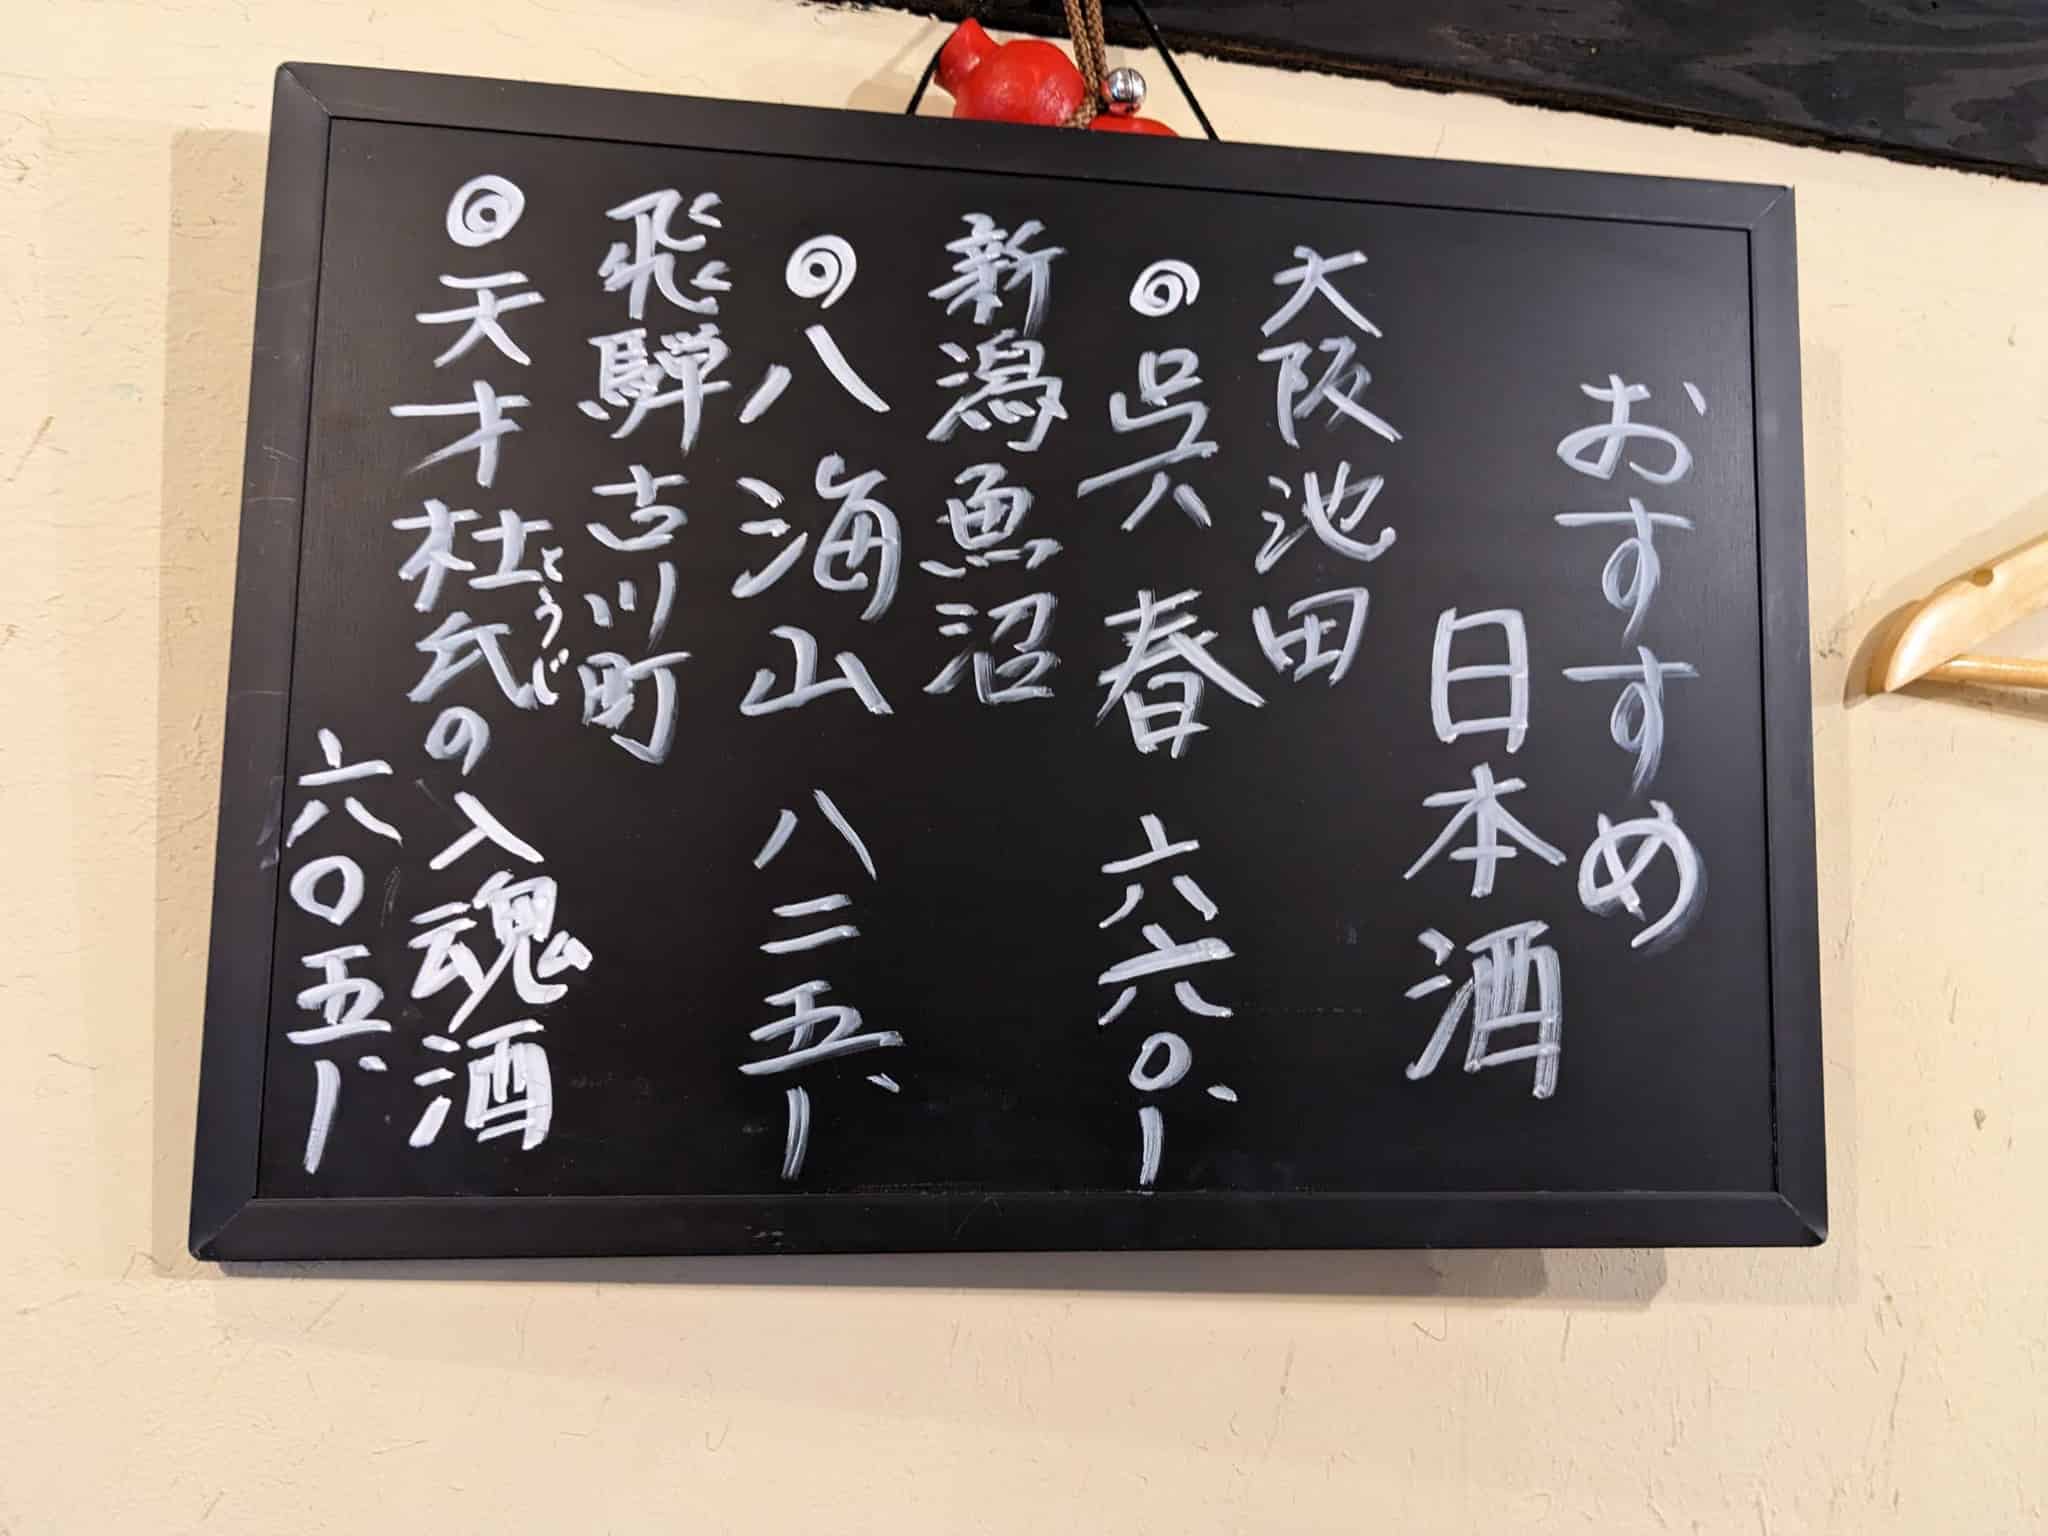 おすすめ
日本酒
大阪池田
◎呉春 六六〇、ー
新潟魚沼
◎八海山 八二五、ー
飛騨古川町
◎天才杜氏の入魂酒
とうじ
六〇五、ー